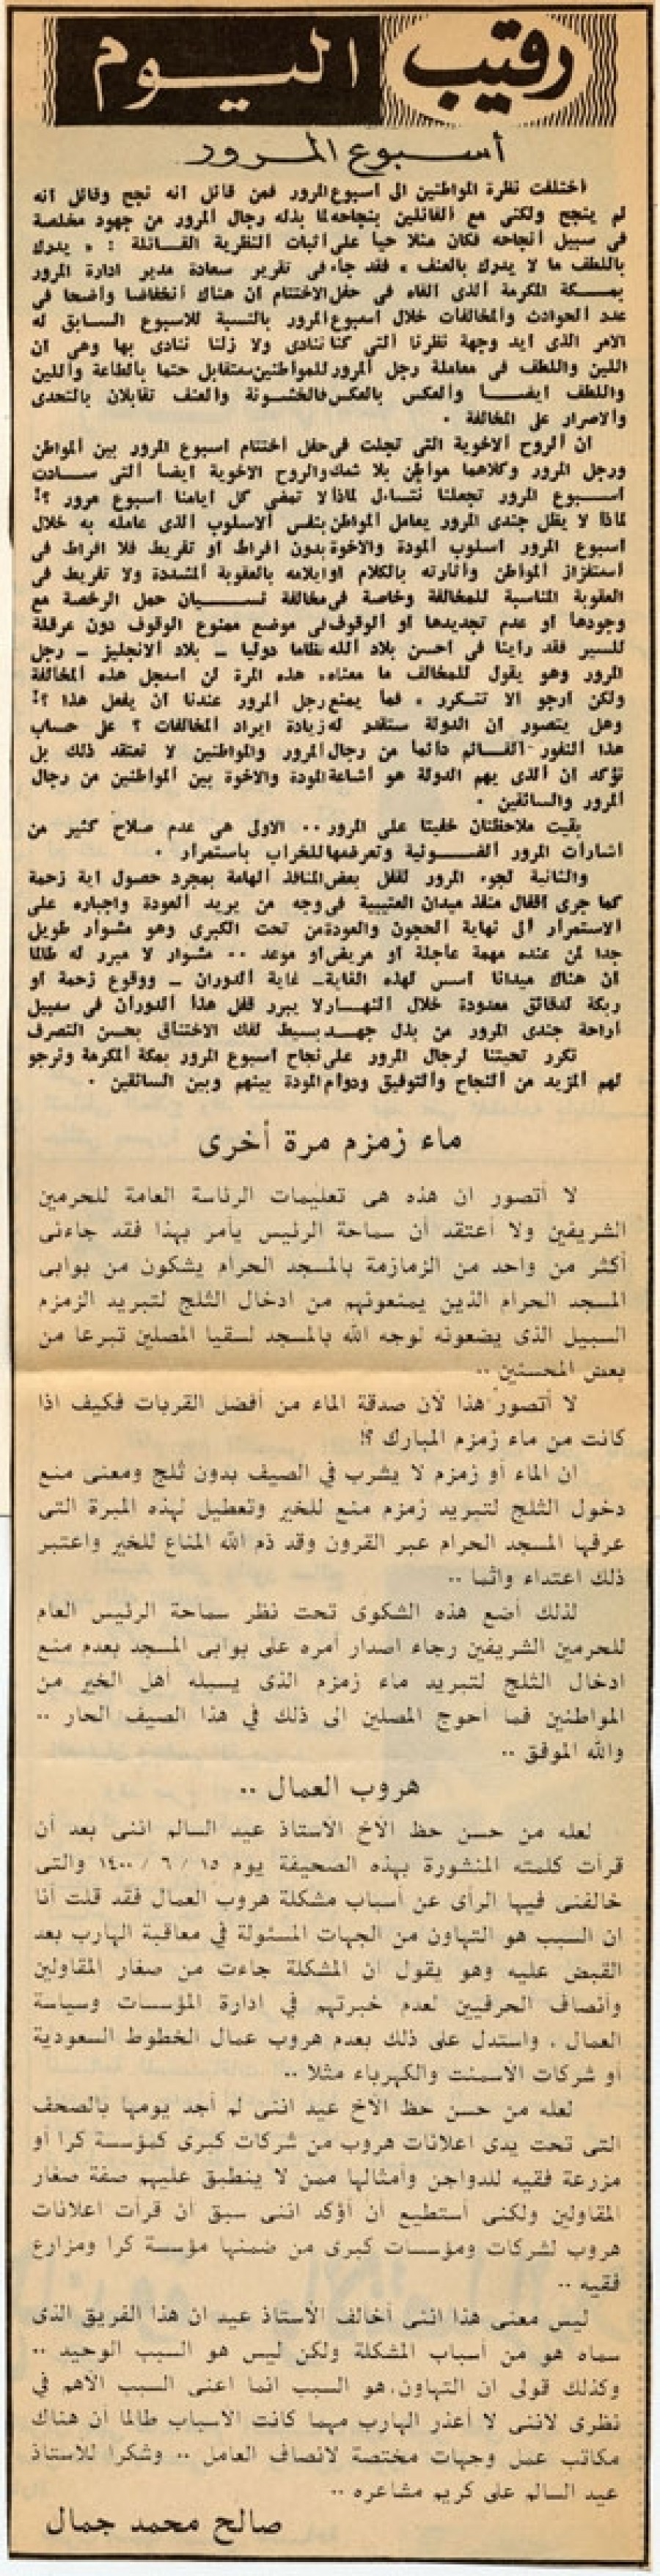 رقيب اليوم
أسبوع المرور
اختلفت نظرة المواطنين الى اسبوع المرور فمن قائل انه نجح وقائل انه
لم ينجح ولكني مع القائلين بنجاحه لما بذله رجال المرور من جهود مخلصة
فى سبيل انجاحه فكان مثلا حيا على اثبات النظرية القائلة : « يدرك
باللطف ما لا يدرك بالعنف » فقد جاء فى تقرير سعادة مدير ادارة المرور
بمكة المكرمة الذى القاه فى حفل الاختتام ان هناك انخفاضا واضحا فى
عدد الحوادث والمخالفات خلال اسبوع المرور بالنسبة للاسبوع السابق له
الامر الذى ايد وجهة نظرنا التى كنا ننادى ولا زلنا ننادى بها وهى ان
اللين واللطف فى معاملة رجل المرور للمواطنين ستقابل حتما بالطاعة واللين
واللطف ايضا والعكس بالعكس فالخشونة والعنف تقابلان بالتحدى
والاصرار على المخالفة .
ان الروح الاخوية التى تجلت فى حفل اختتام اسبوع المرور بين المواطن
ورجل المرور وكلاهما مواطن بلا شك والروح الاخوية ايضا التى سادت
اسبوع المرور تجعلنا نتساءل لماذا لا تمضى كل ايامنا اسبوع مرور ؟!
لماذا لا يظل جندى المرور يعامل المواطن بنفس الاسلوب الذى عامله به خلال
اسبوع المرور اسلوب المودة والاخوة بدون افراط او تفريط فلا افراط فى
استفزاز المواطن واثارته بالكلام او ايلامه بالعقوبة المشددة ولا تفريط فى
العقوبة المناسبة للمخالفة وخاصة فى مخالفة نسيان حمل الرخصة مع
وجودها او عدم تجديدها او الوقوف فى موضع ممنوع الوقوف دون عرقلة
للسير فقد راينا فى احسن بلاد الله نظاما دوليا ـ بلاد الانجليز ـ رجل
المرور وهو يقول للمخالف ما معناه، هذه المرة لن اسجل هذه المخالفة
ولكن ارجو الا تتكرر ، فما يمنع رجل المرور عندنا ان يفعل هذا ؟!
وهل يتصور ان الدولة ستقدر له زيادة ايراد المخالفات ؟ على حساب
هذا النفور القائم دائما من رجال المرور والمواطنين لا نعتقد ذلك بل
نؤكد ان الذى يهم الدولة هو اشاعة المودة والاخوة بين المواطنين من رجال
المرور والسائقين .
بقيت ملاحظتان خفيتا على المرور .. الاولى هى عدم صلاح كثير من
اشارات المرور الضوئية وتعرضها للخراب باستمرار .
والثانية لجوء المرور لقفل بعض المنافذ الهامة بمجرد حصول اية زحمة
كما جرى اقفال منفذ ميدان العتيبية فى وجه من يريد العودة واجباره على
الاستمرار الى نهاية الحجون والعودة من تحت الكبرى وهو مشوار طويل
جدا لمن عنده مهمة عاجلة او مريض او موعد .. مشوار لا مبرر له طالما
ان هناك ميدانا اسس لهذه الغاية ـ غاية الدوران ـ ووقوع زحمة او
ربكة لدقائق معدودة خلال النهار لا يبرر قفل هذا الدوران فى سبيل
اراحة جندى المرور من بذل جهد بسيط لفك الاختناق بحسن التصرف
نكرر تحيتنا لرجال المرور على نجاح اسبوع المرور بمكة المكرمة ونرجو
لهم المزيد من النجاح والتوفيق ودوام المودة بينهم وبين السائقين .
ماء زمزم مرة أخرى
لا أتصور ان هذه هى تعليمات الرئاسة العامة للحرمين
الشريفين ولا أعتقد أن سماحة الرئيس يأمر بهذا فقد جاءنى
أكثر من واحد من الزمازمة بالمسجد الحرام يشكون من بوابى
المسجد الحرام الذين يمنعونهم من ادخال الثلج لتبريد الزمزم
السبيل الذى يضعونه لوجه الله بالمسجد لسقيا المصلين تبرعا من
بعض المحسنين ..
لا أتصور هذا لأن صدقة الماء من أفضل القربات فكيف اذا
كانت من ماء زمزم المبارك ؟!
ان الماء أو زمزم لا يشرب في الصيف بدون ثلج ومعنى منع
دخول الثلج لتبريد زمزم منع للخير وتعطيل لهذه المبرة التى
عرفها المسجد الحرام عبر القرون وقد ذم الله المناع للخير واعتبر
ذلك اعتداء واثما ..
لذلك أضع هذه الشكوى تحت نظر سماحة الرئيس العام
للحرمين الشريفين رجاء اصدار أمره على بوابى المسجد بعدم منع
ادخال الثلج لتبريد ماء زمزم الذى يسبله أهل الخير من
المواطنين فما أحوج المصلين الى ذلك في هذا الصيف الحار ..
والله الموفق ..
هروب العمال ..
لعله من حسن حظ الأخ الأستاذ عيد السالم اننى بعد أن
قرأت كلمته المنشورة بهذه الصحيفة يوم ١٥ / ٦ / ١٤٠٠ والتى
خالفنى فيها الرأى عن أسباب مشكلة هروب العمال فقد قلت أنا
ان السبب هو التهاون من الجهات المسئولة في معاقبة الهارب بعد
القبض عليه وهو يقول ان المشكلة جاءت من صغار المقاولين
وأنصاف الحرفيين لعدم خبرتهم في ادارة المؤسسات وسياسة
العمال . واستدل على ذلك بعدم هروب عمال الخطوط السعودية
أو شركات الأسمنت والكهرباء مثلا ..
لعله من حسن حظ الأخ عيد اننى لم أجد يومها بالصحف
التى تحت يدى اعلانات هروب من شركات كبرى كمؤسسة كرا أو
مزرعة فقيه للدواجن وأمثالها ممن لا ينطبق عليهم صفة صغار
المقاولين ولكنى أستطيع أن أؤكد اننى سبق ان قرأت اعلانات
هروب لشركات ومؤسسات كبرى من ضمنها مؤسسة كرا ومزارع
فقيه ..
ليس معنى هذا اننى أخالف الأستاذ عيد ان هذا الفريق الذى
سماه هو من أسباب المشكلة ولكن ليس هو السبب الوحيد ..
وكذلك قولى ان التهاون هو السبب انما اعنى السبب الأهم في
نظرى لاننى لا أعذر الهارب مهما كانت الأسباب طالما أن هناك
مكاتب عمل وجهات مختصة لانصاف العامل .. وشكرا للأستاذ
عيد السالم على كريم مشاعره ..
صالح محمد جمال